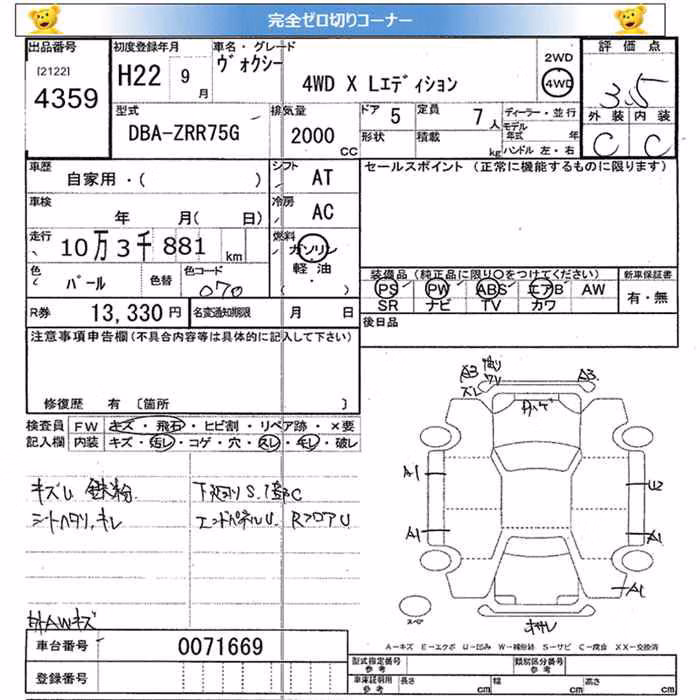 完全ゼロ切りコーナー
出品番号 初度登録年月 車名・グレード 2WD 評価点
[2122] 4359 H22 9月 ヴォクシー 4WD X Lエディション 4WD 3.5
外装 内装
C C
型式 排気量 ドア 5 定員 7人 ディーラー・並行
DBA-ZRR75G 2000CC 形状 積載 kg モデル年式 年
ハンドル 左・右
車歴 シフト セールスポイント (正常に機能するものに限ります)
自家用・( ) AT
車検 年 月( 日) 冷房 AC
走行 10万3千881km 燃料 ガソリン
軽油・
色 パール 色替 色コード 070
装備品 (純正品に限り○をつけてください) 新車保証書
PS PW ABS エアB AW 有・無
SR ナビ TV カワ
R券 13,330円 名変通知期限 月 日 後日品
注意事項申告欄 (不具合内容等は具体的に記入して下さい)
修復歴 有 [箇所 ]
検査員 FW キズ・飛石・ヒビ割・リペア跡・×要
記入欄 内装 キズ・汚レ・コゲ・穴・スレ・キレ・破レ
キズU 鉄粉 下廻りS.1部C
シートヘタリ.キレ エンドパネルU RフロアU
AWキズ
A3 A3
A1 U2
A1 A1
A1
スペア
A-キズ E-エクボ U-凹み W-補修跡 S-サビ C-腐食 XX-交換済
車台番号 0071669
登録番号
型式指定番号 参考 類別区分番号 参考
車庫証明用 参考 長さ cm 幅 cm 高さ cm